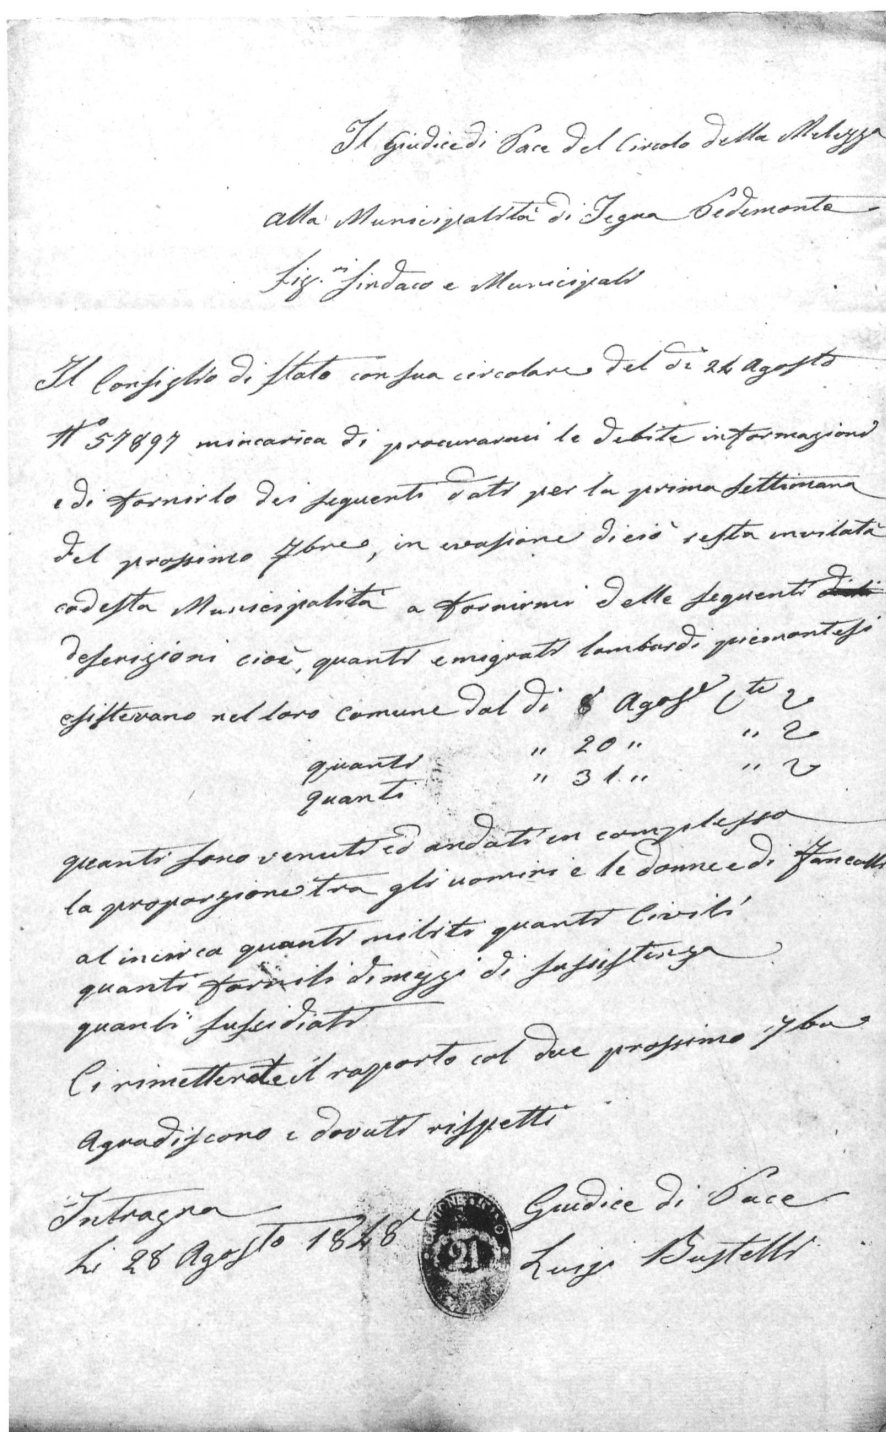 Il Giudice di Pace del Circolo della Melezza
alla Municipalità di Tegna Pedemonte
Sig.ri Sindaco e Municipali
Il Consiglio di Stato con sua circolare del dì 24 Agosto
N° 57897 mincarica di procurarmi le debite informazioni
e di fornirlo dei seguenti dati per la prima settimana
del prossimo 7bre, in evasione di ciò resta invitata
codesta Municipalità a fornirmi delle seguenti
descrizioni cioè, quanti emigrati lombardi piemontesi
esistevano nel loro comune dal di 8 Agosto Cte 2
quanti " 20 " " 2
quanti " 31 " " 2
quanti sono venuti ed andati in complesso
la proporzione tra gli uomini e le donne e di fanciulli
al incirca quanti militi quanti Civili
quanti forniti di mezzi di sussistenza
quanti sussidiati
Ci rimetterete il raporto col due prossimo 7bre
Agradiscono i dovuti rispetti
Intragna
Li 28 Agosto 1848
Giudice di Pace
Luigi Bustelli
CANTONE TICINO
21